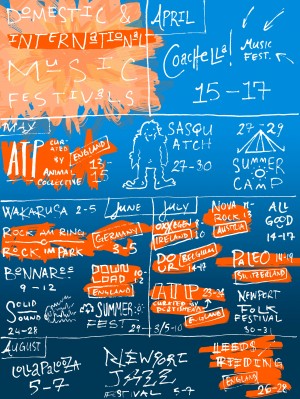 DOMESTIC &
INTERNATIONAL
MUSIC
FESTIVALS
APRIL
COACHELLA!
MUSIC
FEST.
15-17
MAY
ATP
CURATED
BY
ANIMAL
COLLECTIVE
ENGLAND
13-15
SASQUATCH
27-30
27-29
SUMMER
CAMP
WAKARUSA 2-5
JUNE
ROCK AM RING
ROCK IM PARK
GERMANY
3-5
BONNAROO
9-12
DOWNLOAD
10-12
ENGLAND
SOLID
SOUND
24-28
SUMMER
FEST
29-
JULY
OXYGEN
IRELAND
10
NOVA
ROCK
11-13
AUSTRIA
ALL
GOOD
14-17
DOUR
BELGIUM
14-17
PALEO
SWITZERLAND
ATP
23-24
CURATED BY
ENGLAND
NEWPORT
FOLK
FESTIVAL
30-31
AUGUST
LOLLAPALOOZA
5-7
NEWPORT
JAZZ
FESTIVAL 5-7
LEEDS
READING
FESTIVAL
ENGLAND
26-28